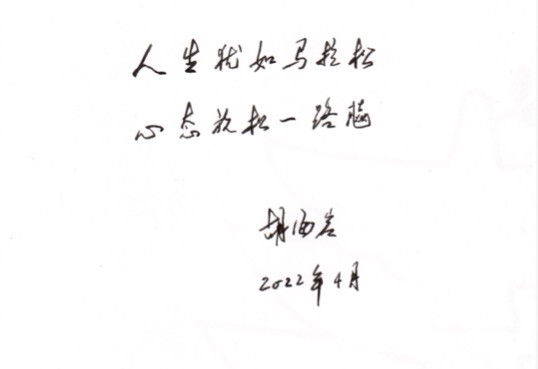 人生犹如马拉松
心态放松一路脑
胡西岩
2022年4月